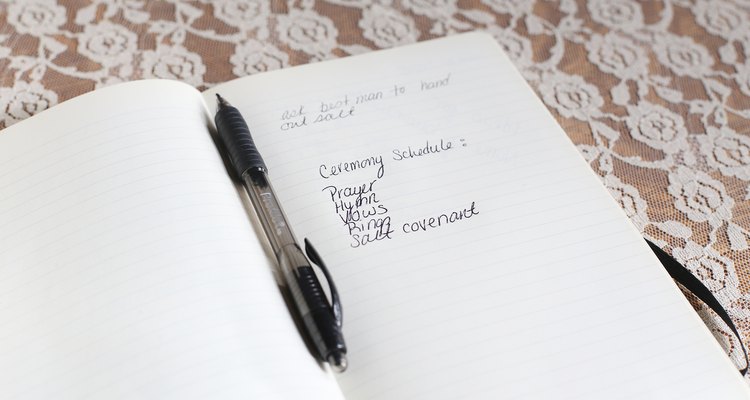 ask best man to hand
out salt
Ceremony Schedule :
Prayer
Hymn
Vows
Rings
Salt covenant